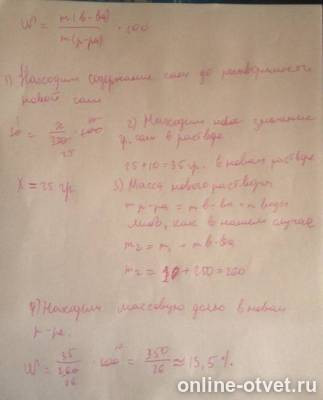 W = m(в-ва) / m(р-ра) · 100
1) Находим содержание соли до растворимости
новой соли
10 = x / 250 · 100
25
2) Находим новое значение
гр. соли в растворе
25+10=35 гр. в новом растворе
X = 25 гр.
3) Масса нового раствора
m р-ра = m в-ва + m воды
либо, как в нашем случае
m₂ = m₁ + m в-ва
m₂ = 10 + 250 = 260
4) Находим массовую долю в новом
р-ре.
W = 35 / 260 · 100 = 350 / 26 ≈ 13,5 %.
26
10
online-otvet.ru